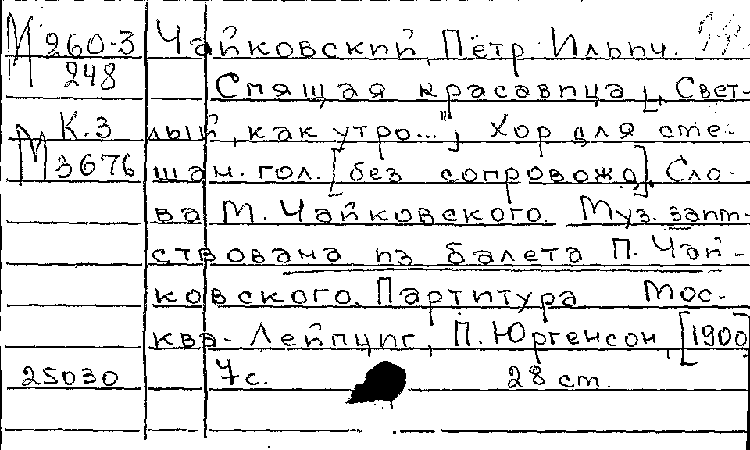 М 260-3 Чайковский, Пётр Ильич.
248 Спящая красавица [„Свет-
М К.3 лый, как утро..."] Хор для сме-
3676 шан. гол. [без сопровожд]. Сло-
ва М. Чайковского. Муз. заим-
ствована из балета П. Чай-
ковского. Партитура Мос-
ква - Лейпциг, П. Юргенсон, [1900]
25030 7 с. 28 cm.